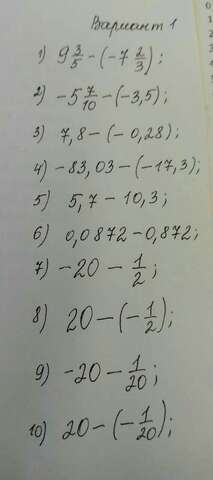 Вариант 1
1) 9 3/5 - (-7 2/3);
2) -5 7/10 - (-3,5);
3) 7,8 - (-0,28);
4) -83,03 - (-17,3);
5) 5,7 - 10,3;
6) 0,0872 - 0,872;
7) -20 - 1/2;
8) 20 - (-1/2);
9) -20 - 1/20;
10) 20 - (-1/20);